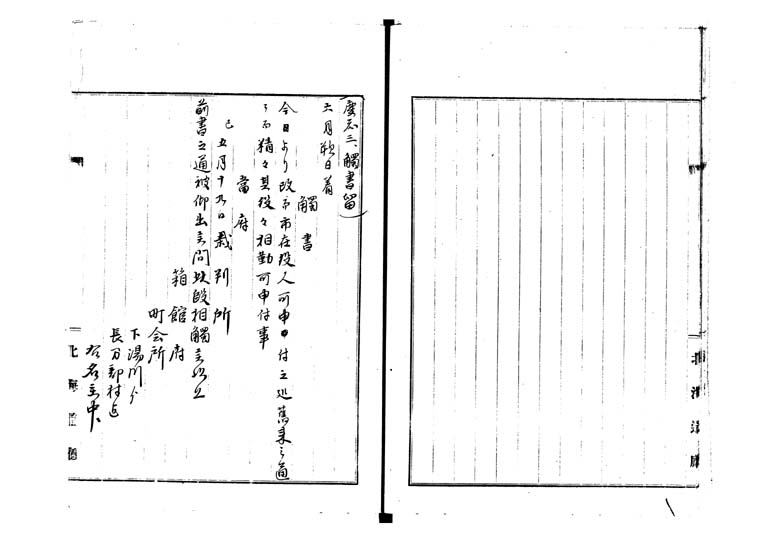 (慶応三、觸書留)
六月朔日着
觸書
今日より改而市在役人可申付之処舊来之通
ニ而精々其役々相勤可申付事
當府
巳五月十九日裁判所
前書之通被仰出候間此段相觸候以上
箱館府
町会所
下湯川ゟ
長万部村迄
右名主中
北海道廳